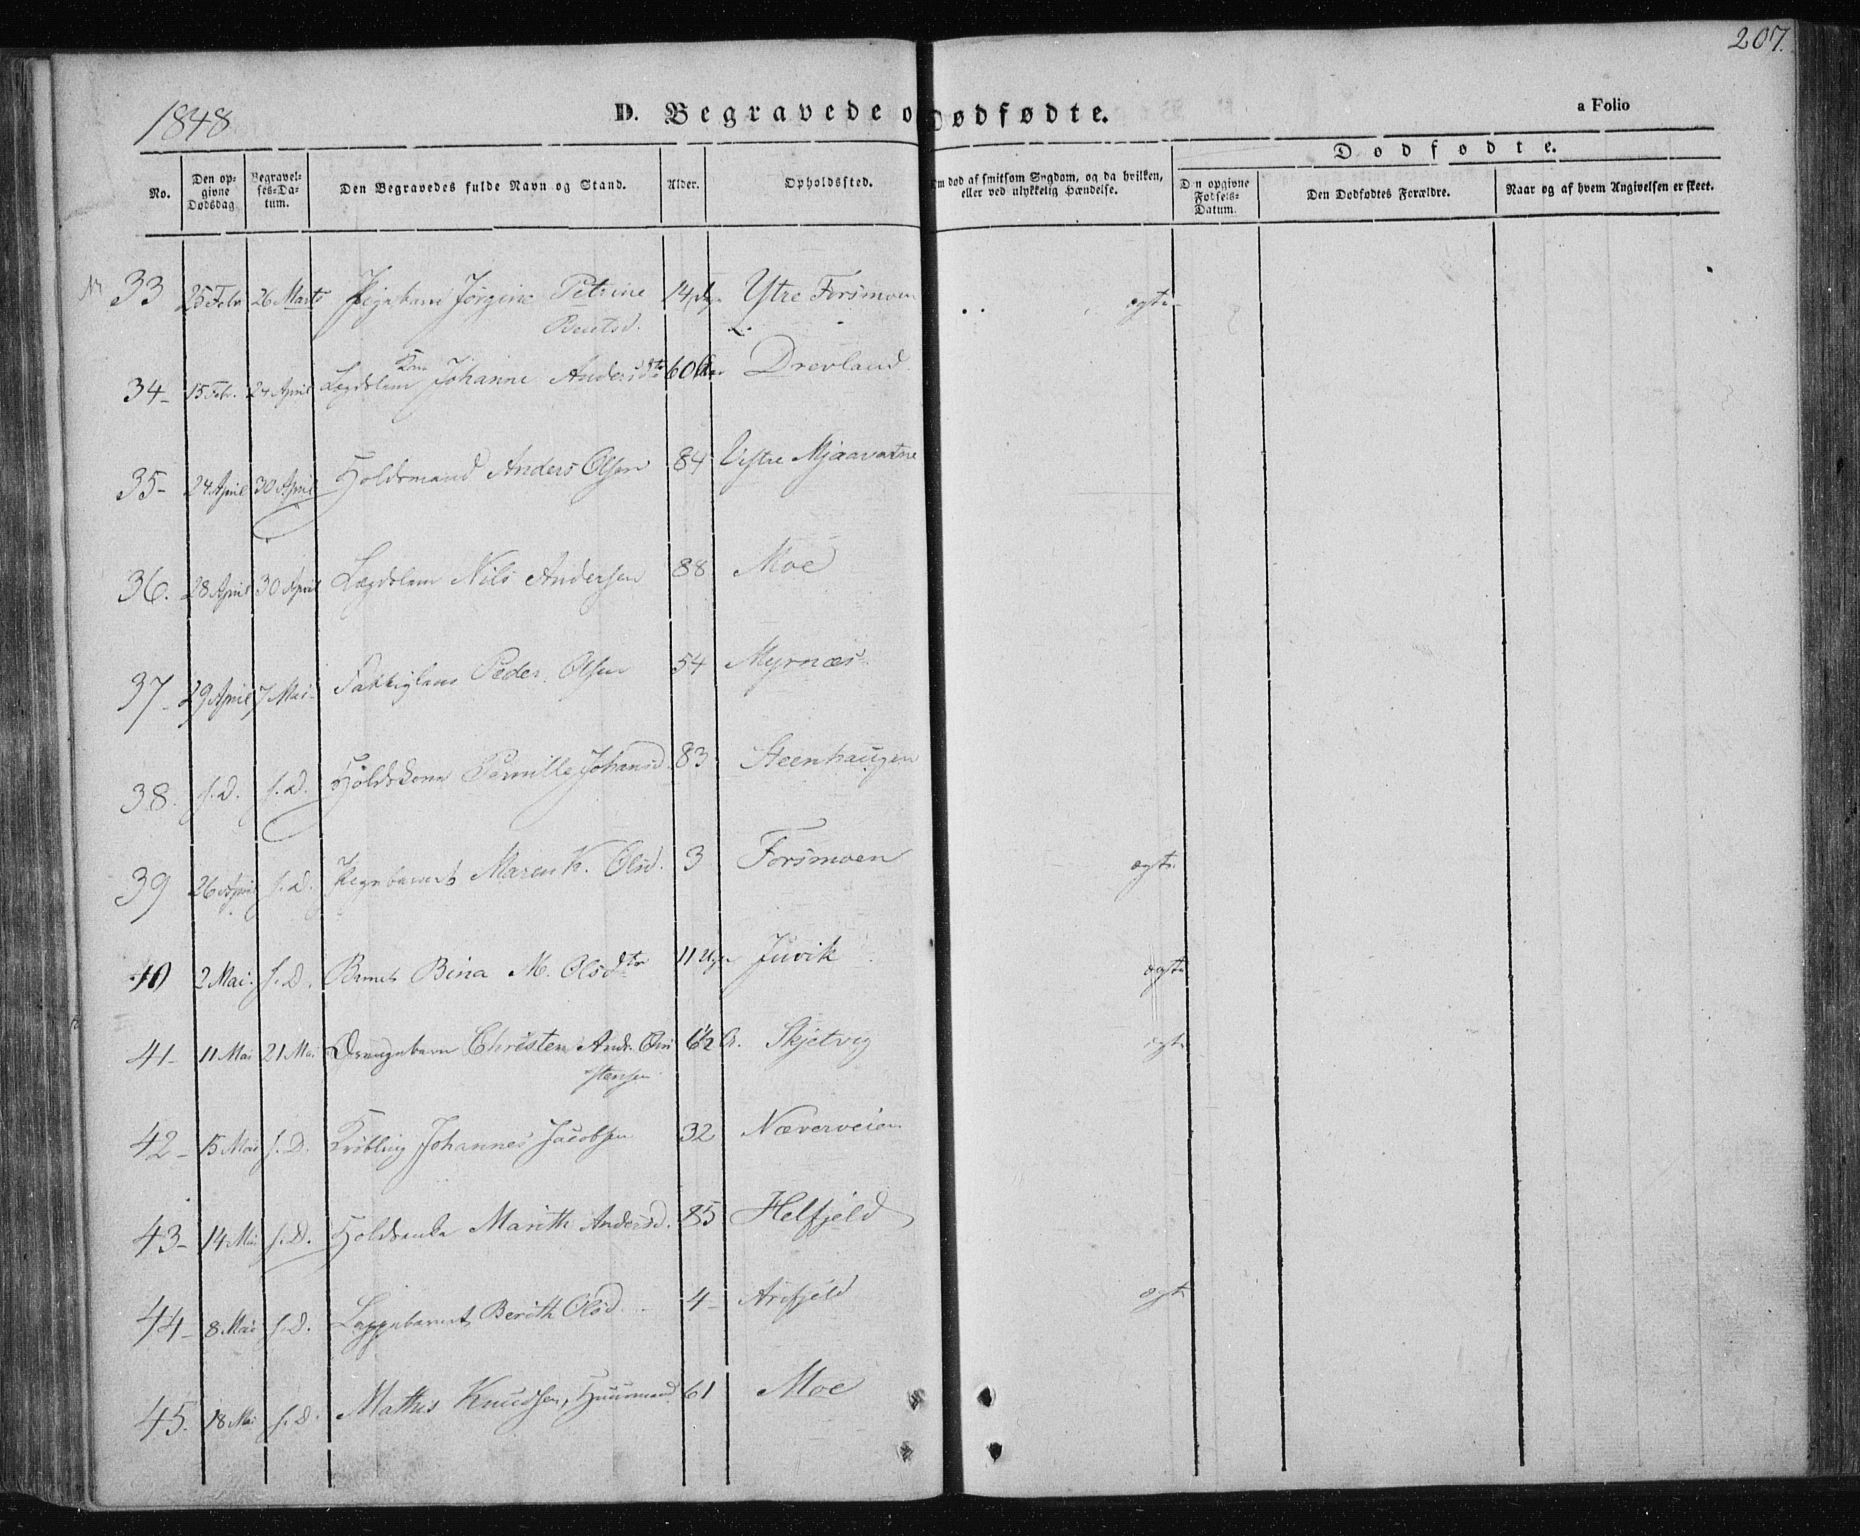 207.
1848
D. Begravede o Dødfødte.
a Folio
Dødfødte.
No.
Den opgivne Dødsdag
Begravelses-Datum.
Den Begravedes fulde Navn og Stand.
Alder.
Opholdssted.
Om død af smitsom Sygdom, og da hvilken, eller ved ulykkelig Hændelse.
Den opgivne Fødsels-Datum.
Den Dødfødtes Forældre.
Naar og af hvem Angivelsen er skeet.
33 25 Febr 26 Marts Pigebarn Jørgine Petrine 14 Ytre Forsmoen ægte
Bentsd.
Kone
34- 15 Febr. 24 April Lægdslem Johanne Andersdtr 60 Aar Drevland
35- 24 April 30 April Holdsmand Anders Olsen 84 Vestre Mjaavatne
36. 28 April 30 April Lægdslem Nils Andersen 88 Moe
37- 29 April 7 Mai- Fattiglem Peder Olsen 54 Myrnæs
38. s.D. s.D. Holdskone Pernille Johansd. 83 Steenhaugen
39 26 April s.d. Pigebarnet Maren K. Olsd. 3 Forsmoen ægte
40 2 Mai. s.D. Barnet Bina M. Olsdtr 11 Uger Juvik ægte
41- 11 Mai 21 Mai Drengebarn Christen Andr. Chri 6½ A. Skjetvig ægt
stensen
42- 15 Mai s.D. Krøbling Johannes Jacobsen 32 Næverveien
43- 14 Mai s.D. Holdsenke Marith Andersd. 85 Helfjeld
44- 8 Mai s.D. Lappebarnet Berith Olsd. 4- Arefjeld ægt
45. 18 Mai s.D. Mathis Knudsen, Huusmand 61 Moe